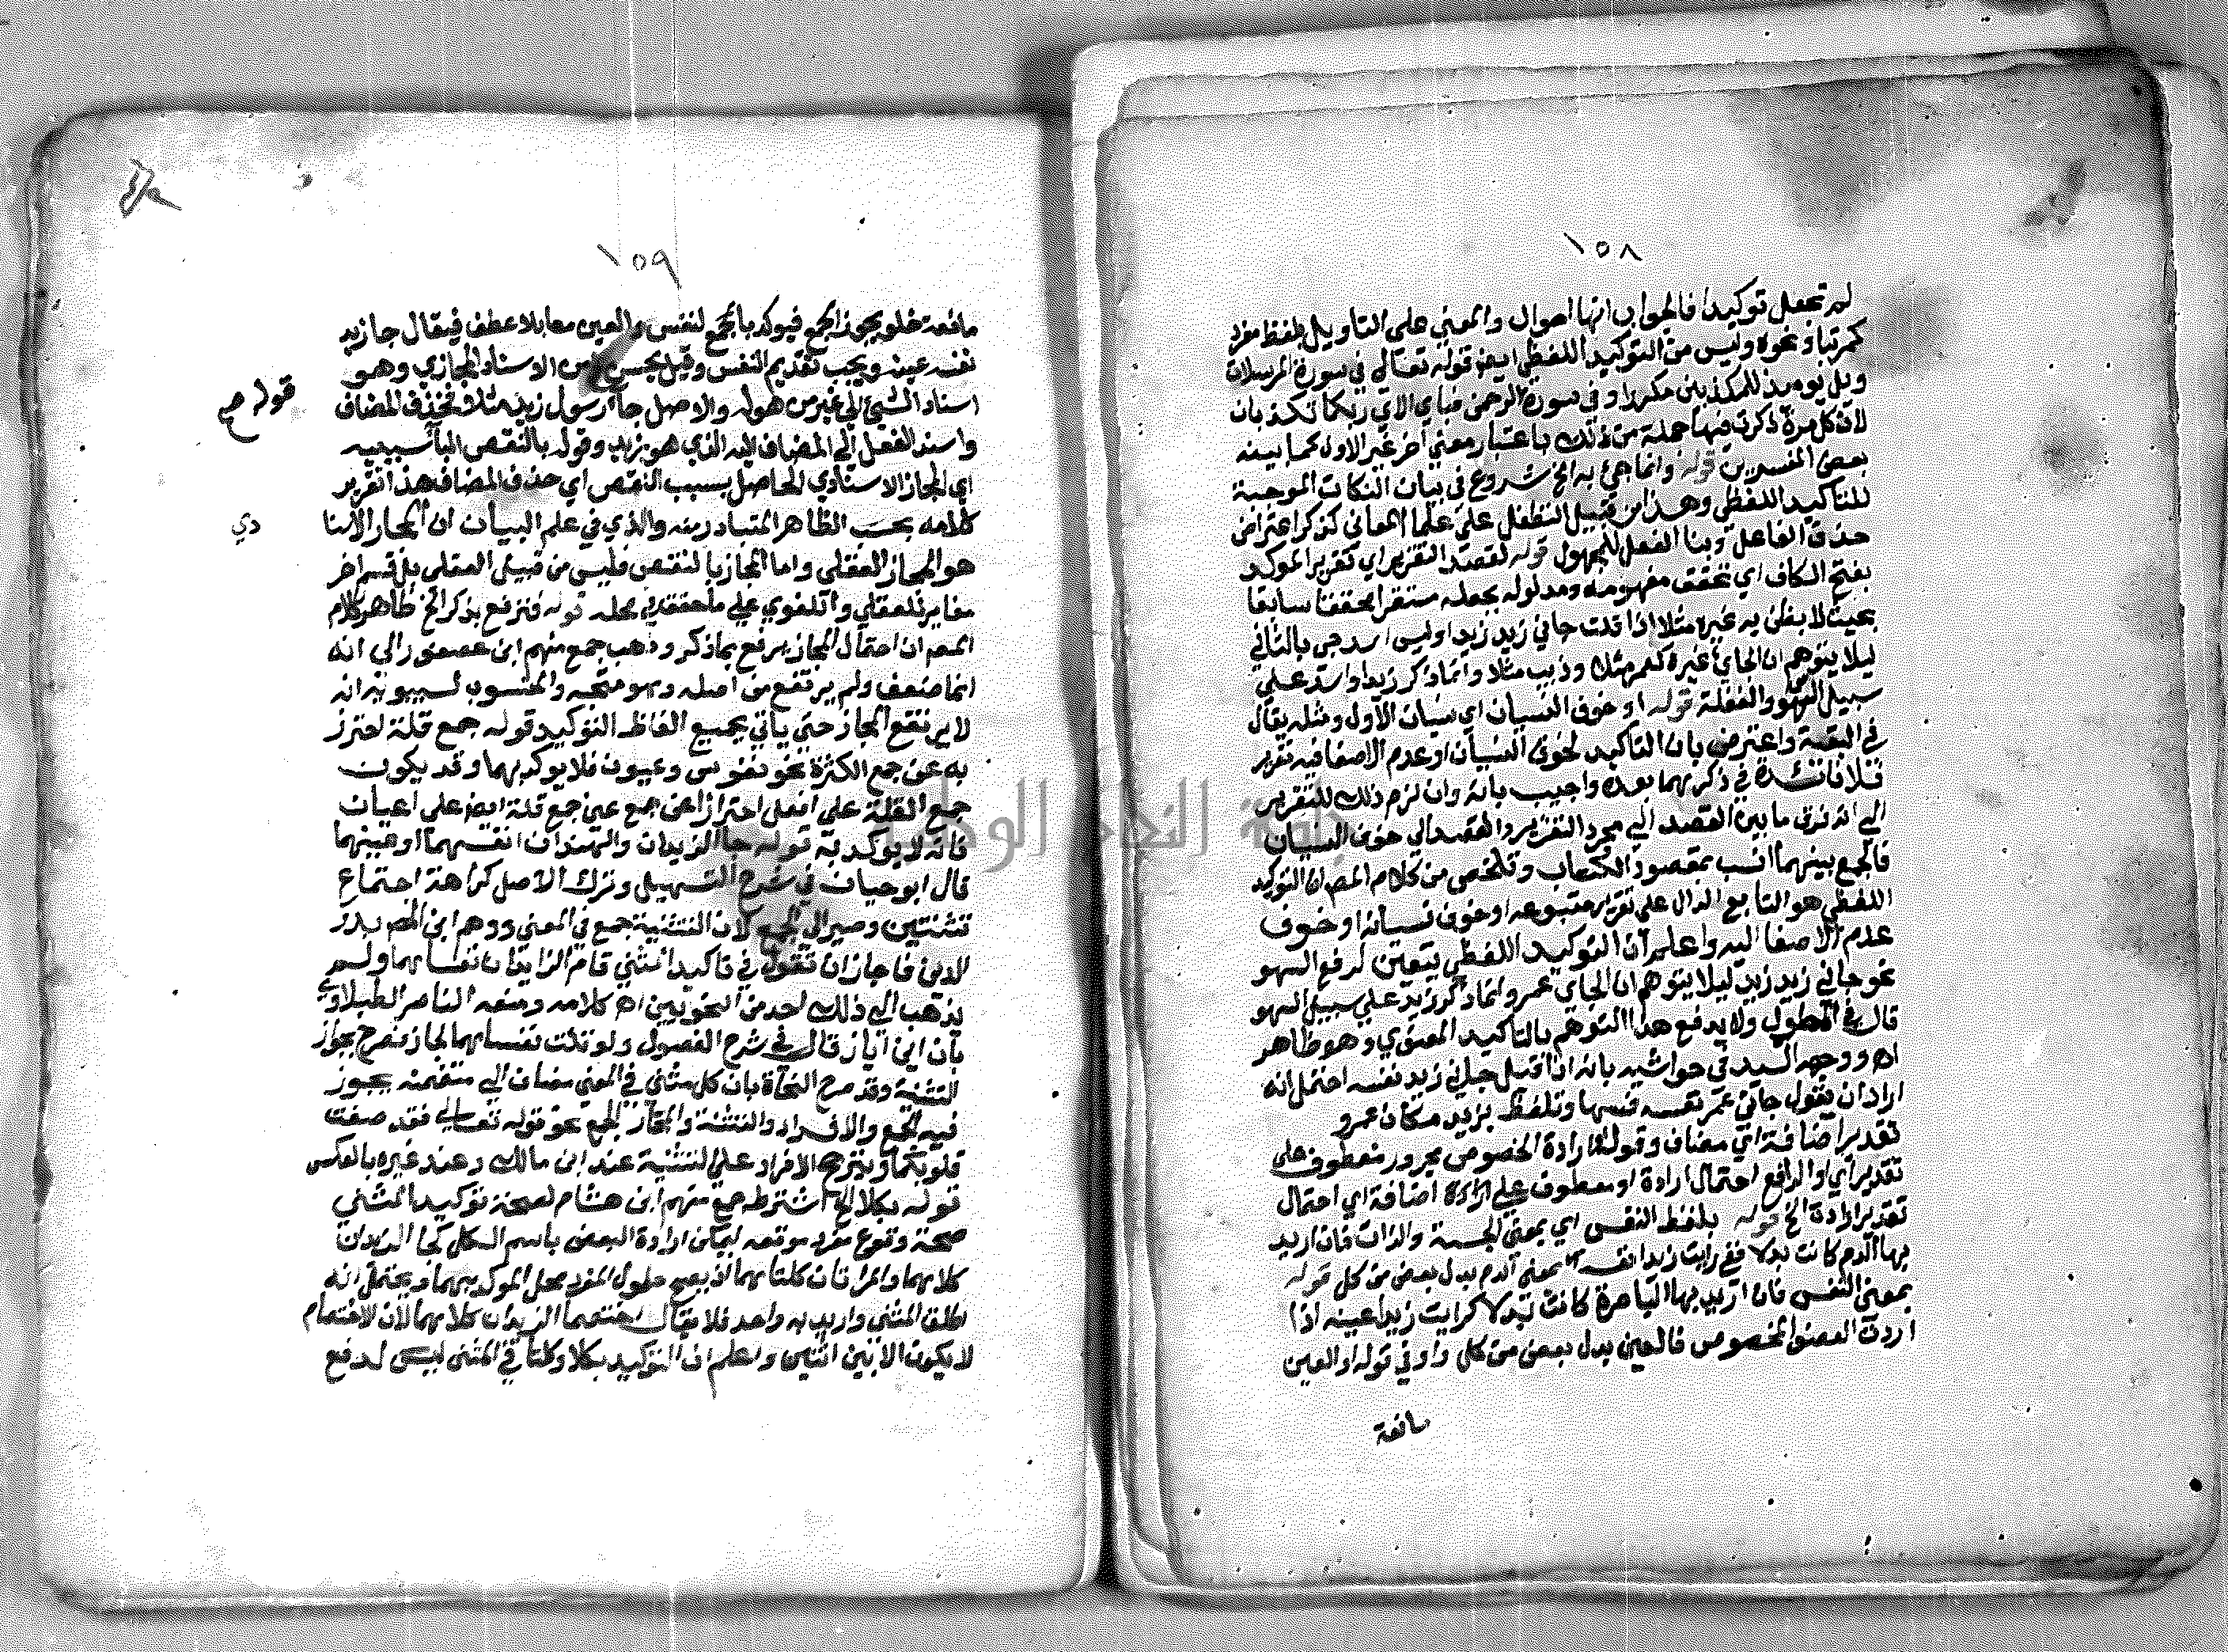 ١٥٨
لم تجعل توكيدا فالجواب انها احوال والمعني علي التاويل بلفظ مفرد
كمرتبا ونحوه وليس من التوكيد اللفظي ايضا قوله تعالي في سورة المرسلات
ويل يومئذ للمكذبين مكررا وفي سورة الرحمن فباي الاي ربكما تكذبان
لان كل مرة ذكرت فيها جملة من ذلك باعتبار معني اخر غير الاول كما بينه
بعض المفسرين قوله وانما جئ به الخ شروع في بيان النكات الموجبة
للتاكيد اللفظي وهذا من قبيل التطفل علي علما المعاني كذكر اعتراض
حذف الفاعل وبنا الفعل للمجهول قوله لقصد التقرير اي تقرير الموكد
بفتح الكاف اي تحقق مفهومه ومدلوله بجعله مستقرا محققا سابقا
بحيث لا يظن به غيره مثلا اذا قلت جاني زيد زيدا وليس بالثاني
ليلا يتوهم ان الجاي غيره كعمر مثلا وذيب مثلا وانما ذكر زيدا واسد علي
سبيل السهو والغفلة قوله او خوف النسيان اي نسيان الاول ومثله يقال
في البقية واعترض بان التاكيد لخوف النسيان او عدم الاصغا فيه تقرير
فلا فائدة في ذكرهما بعده واجيب بانه وان لزم ذلك للتقرير
الي انه فرق ما بين القصد الي مجرد التقرير والقصد الي خوف النسيان
فالجمع بينهما انسب بمقصود الكتاب وتلخص من كلام المص ان التوكيد
اللفظي هو التابع الدال علي تقرير متبوعه او خوف نسيانه او خوف
عدم الاصغا اليه واعلم ان التوكيد اللفظي يتعين لرفع السهو
نحو جاني زيد زيد ليلا يتوهم ان الجاي عمرو وانما ذكر زيد علي سبيل السهو
قال في المطول ولا يدفع هذا التوهم بالتاكيد المعنوي وهو ظاهر
اه ووجهه السيد في حواشيه بانه اذا قيل جاني زيد نفسه احتمل انه
اراد ان يقول جاني عمر نفسه فسها وتلفظ بزيد مكان عمرو
تقدير اضافة اي مضاف وقوله ارادة الخصوص مجرور معطوف علي
تقدير اي والرافع احتمال ارادة او معطوف علي اضافة اي احتمال
تقدير ارادة الخ قوله بلفظ النفس اي بمعني الجسة والذات فان اريد
بها الدم كانت بدلا ففي رايت زيدا نفسه بمعني الدم بدل بعض من كل قوله
بمعني النفس فان اريد بها الباصرة كانت بدلا كرايت زيدا عينه اذا
اردت العضو المخصوص فالعين بدل بعض من كل واو في قوله او العين
مانعة
١٥٩
مانعة خلو يجوز الجمع فيوكد بالجمع لنفس والعين معا بلا عطف فيقال جا زيد
نفسه عينه ويجب تقديم النفس وقيل يحسن من الاسناد المجازي وهو
اسناد الشيئ الي غير من هو له والاصل جا رسول زيد مثلا فحذف المضاف
واسند الفعل الي المضاف اليه الذي هو زيد وقوله بالنقص البا سببيه
اي المجاز الاسنادي الحاصل بسبب النقص اي حذف المضاف هذا تقرير
كلامه بحسب الظاهر المتبادر منه والذي في علم البيان ان المجاز الاسنا
هو المجاز العقلي واما المجاز بالنقص فليس من قبيل العقلي بل قسم اخر
مغاير للعقلي واللغوي علي ما حقق في محله قوله فترفع بذكر الخ ظاهر كلام
المص ان احتمال المجاز يرفع بما ذكر وذهب جمع منهم ابن عصفور الي انه
انما ضعف ولم يرتفع من اصله وهو متجه والمنسوب لسيبويه انه
لا يرتفع المجاز حتي ياتي بجميع الفاظ التوكيد قوله جمع قلة احترز
به عن جمع الكثرة نحو نفوس وعيون فلا يوكد بهما وقد يكون
جمع القلة علي افعل احترازا عن جمع عين جمع قلة ايضا علي اعيان
فانه لا يوكد به قوله جا الزيدان والهندان انفسهما او عينهما
قال ابو حيان في شرح التسهيل وترك الاصل كراهة اجتماع
تثنتين وصير الي الجمع لان التثنية جمع في المعني ووهم ابن المص بدر
الدين فاجاز ان تقول في تاكيد المثني قام الزايدان نفساهما ولم
يذهب الي ذلك احد من النحويين اه كلامه ومنعه الناصر الطبلاوي
بان ابن اياز قال في شرح الفصول ولو قلت نفساهما لجاز فصرح بجواز
التثنية وقد صرح النحاة بان كل مثني في المعني مضاف الي متضمنه يجوز
فيه الجمع والافراد والتثنية والمختار الجمع نحو قوله تعالي فقد صغت
قلوبكما ويترجح الافراد علي التثنية عند ابن مالك وعند غيره بالعكس
قوله بكلا الخ اشترط جمع منهم ابن هشام لصحة توكيد المثني
صحة وقوع مفرد موقعه ليمكن ارادة البعض باسم الكل كجا الزيدان
كلاهما والمراتان كلتاهما اذ يصح حلول المفرد محل الموكد بهما ويحتمل انه
اطلق المثني واريد به واحد فلا يقال اختصم الزيدان كلاهما لان الاختصام
لا يكون الا بين اثنين واعلم ان التوكيد بكلا وكلتا في المثني ليس لدفع
قوله صح
دي